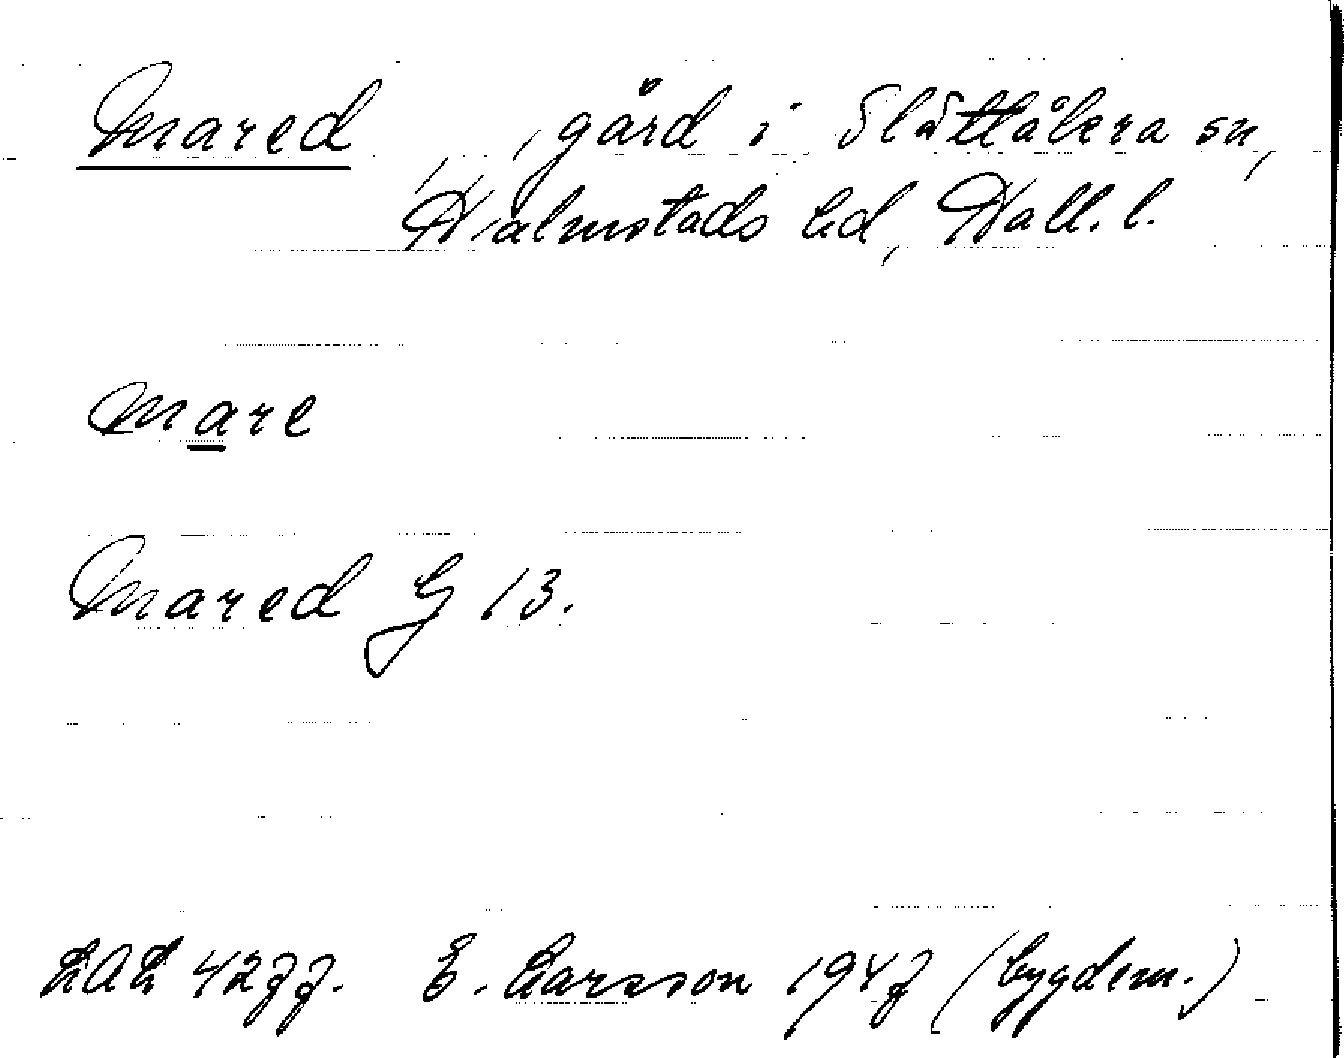 Mared, gård i Slättåkra sn,
Halmstads hd, Hall. l.
mare
Mared G 13.
LAL 4277. E. Larsson 1947 (bygdem.)